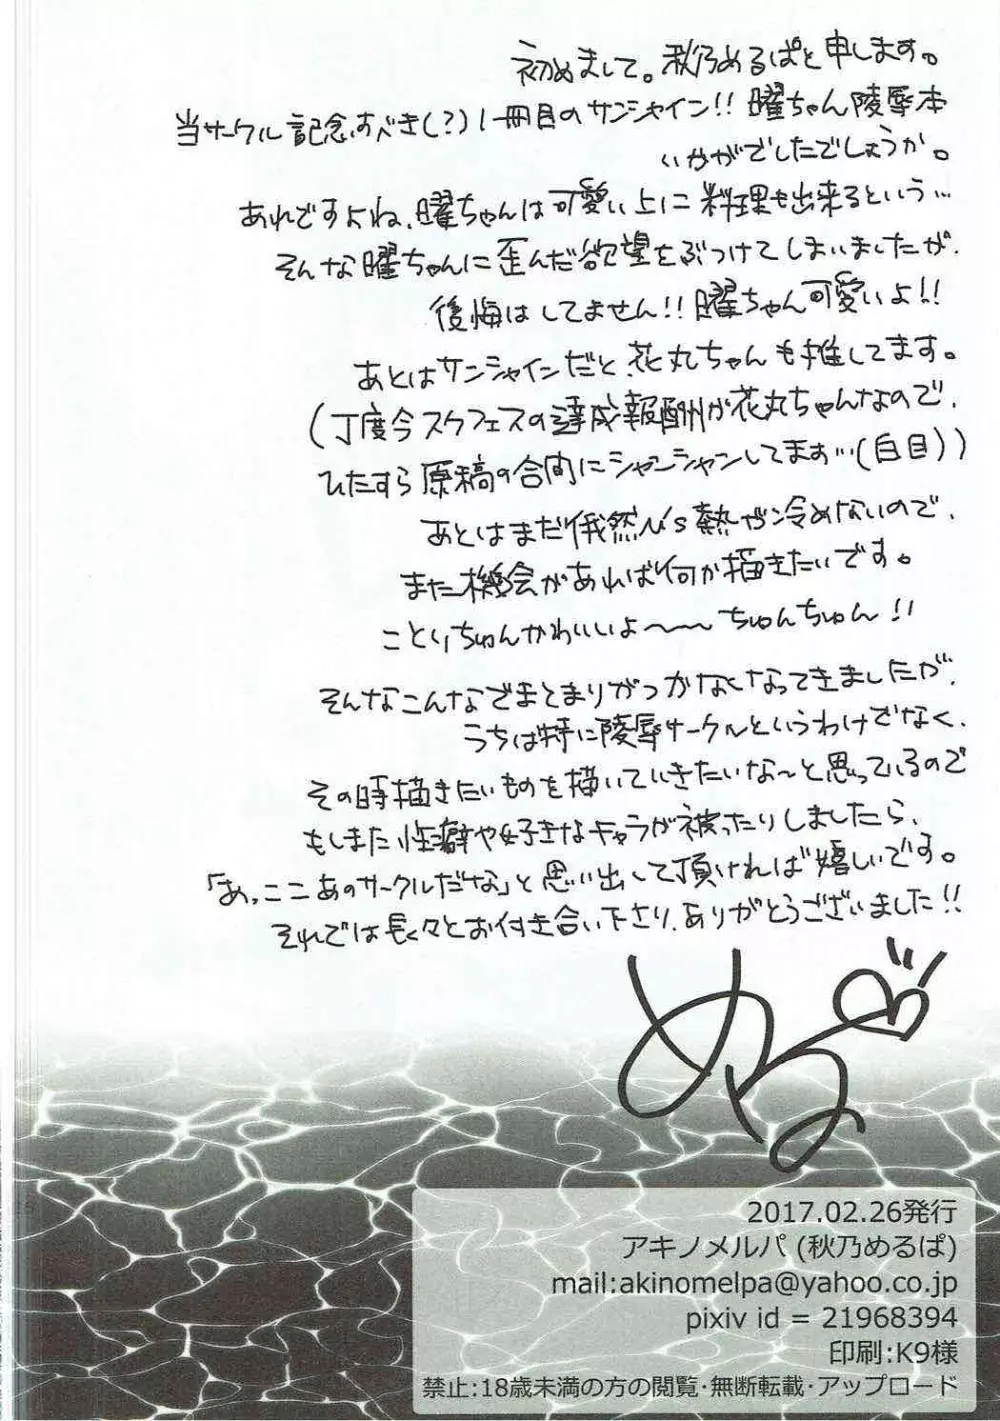 初めまして。秋乃めるぱと申します。
当サークル記念すべき(?)1冊目のサンシャイン!! 曜ちゃん陵辱本
いかがでしたでしょうか。
あれですよね、曜ちゃんは可愛い上に料理も出来るという…
そんな曜ちゃんに歪んだ欲望をぶつけてしまいましたが、
後悔はしてません!! 曜ちゃん可愛いよ!!
あとはサンシャインだと花丸ちゃんも推してます。
(丁度今スクフェスの達成報酬が花丸ちゃんなので、
ひたすら原稿の合間にシャンシャンしてます…(白目))
あとはまだ俄然μ's熱が冷めないので、
また機会があれば何か描きたいです。
ことりちゅんかわいいよ〜〜〜ちゅんちゅん!!
そんなこんなでまとまりがつかなくなってきましたが、
うちは特に陵辱サークルというわけでなく、
その時描きたいものを描いていきたいな〜と思っているので
もしまた性癖や好きなキャラが被ったりしましたら、
「あっここあのサークルだな」と思い出して頂ければ嬉しいです。
それでは長々とお付き合い下さり、ありがとうございました!!
める
2017.02.26発行
アキノメルパ (秋乃めるぱ)
mail:akinomelpa@yahoo.co.jp
pixiv id = 21968394
印刷:K9様
禁止:18歳未満の方の閲覧・無断転載・アップロード